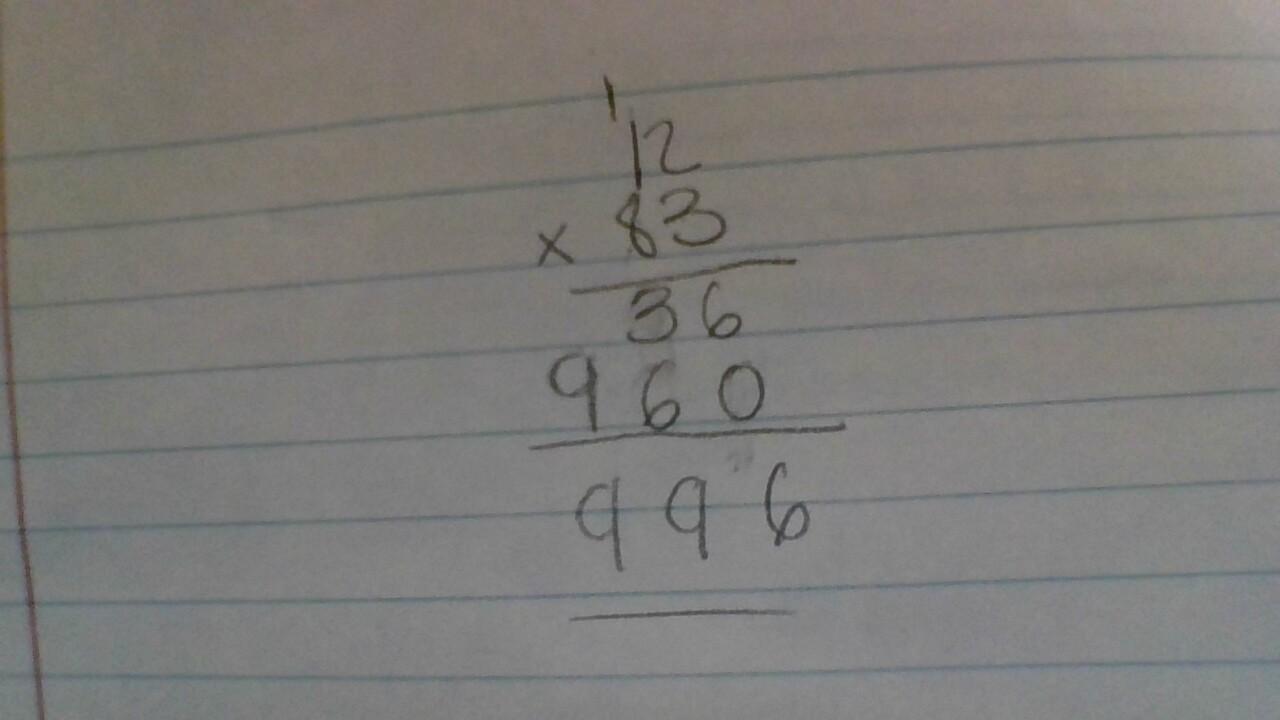 1
12
x 83
36
960
996